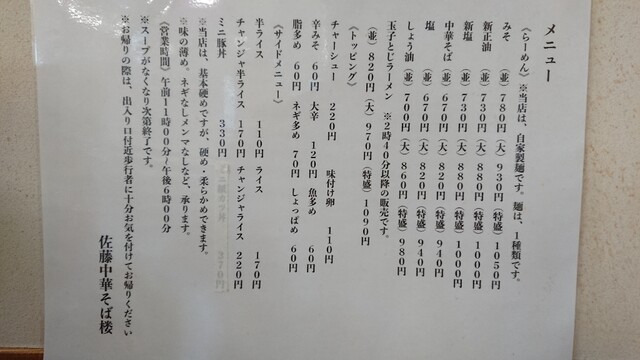 メニュー
《らーめん》 ※当店は、自家製麺です。麺は、1種類です。
みそ (並) 780円 (大) 930円 (特盛) 1050円
新正油 (並) 730円 (大) 880円 (特盛) 1000円
新塩 (並) 730円 (大) 880円 (特盛) 1000円
中華そば (並) 670円 (大) 820円 (特盛) 940円
塩 (並) 670円 (大) 820円 (特盛) 940円
しょう油 (並) 700円 (大) 860円 (特盛) 980円
玉子とじラーメン ※2時40分以降の販売です。
(並) 820円 (大) 970円 (特盛) 1090円
《トッピング》
チャーシュー 220円 味付け卵 110円
辛みそ 60円 大辛 120円 魚多め 60円
脂多め 60円 ネギ多め 70円 しょっぱめ 60円
《サイドメニュー》
半ライス 110円 ライス 170円
チャンジャ半ライス 170円 チャンジャライス 220円
ミニ豚丼 330円 270円
※当店は、基本硬めですが、硬め・柔らかめできます。
※味の薄め。ネギなしメンマなしなど、承ります。
《営業時間》 午前11時00分~午後6時00分
※スープがなくなり次第終了です。
※お帰りの際は、出入り口付近歩行者に十分お気を付けてお帰りください
佐藤中華そば楼